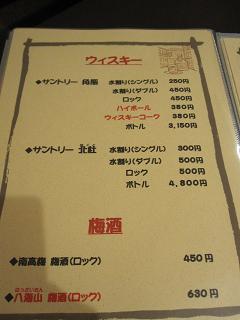 ウィスキー
◆サントリー 角瓶 水割り(シングル) 250円
水割り(ダブル) 450円
ロック 450円
ハイボール 350円
ウィスキーコーク 380円
ボトル 3,150円
◆サントリー 北杜 水割り(シングル) 300円
水割り(ダブル) 500円
ロック 500円
ボトル 4,800円
梅酒
◆南高梅 梅酒(ロック) 450円
はっかいさん
◆八海山 梅酒(ロック) 630円